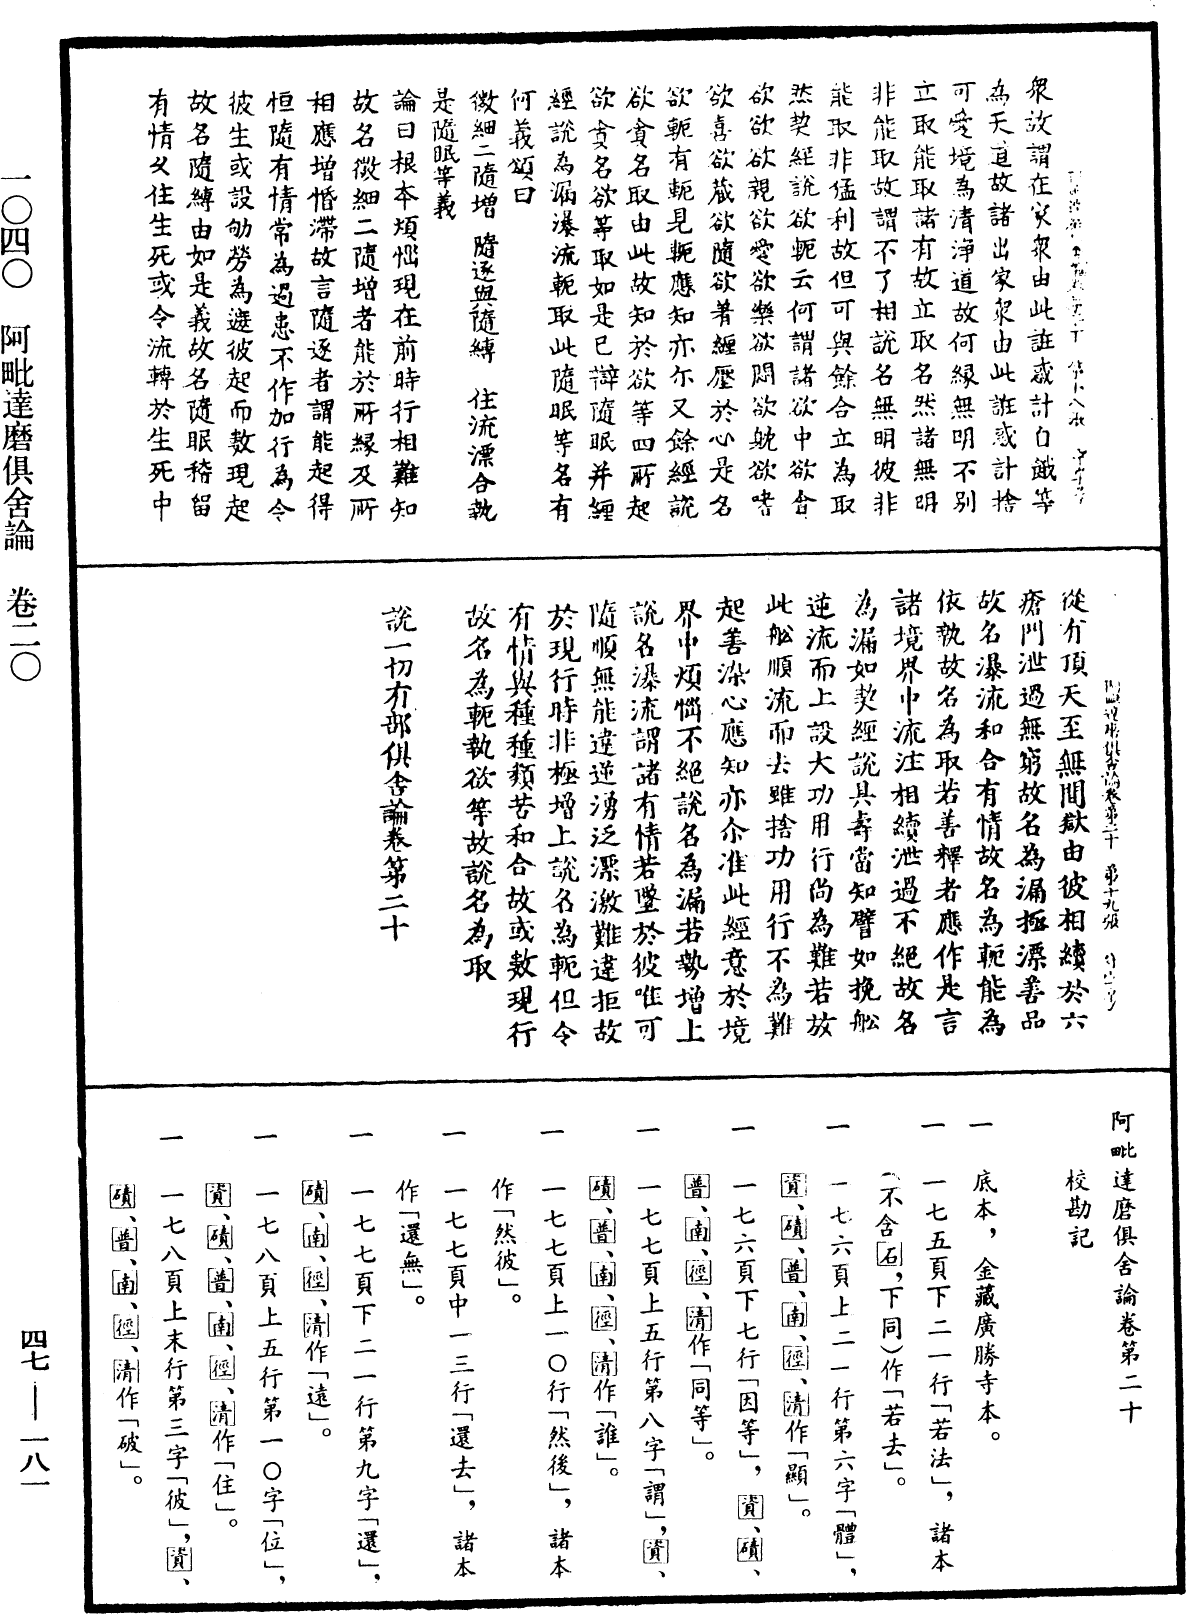 一〇四〇　阿毗達磨俱舍論　卷二〇
四七——一八一
衆故謂在家衆由此誑惑計自餓等
為天道故諸出家衆由此誑惑計捨
可愛境為清淨道故何緣無明不別
立取能取諸有故立取名然諸無明
非能取故謂不了相說名無明彼非
能取非猛利故但可與餘合立為取
然契經說欲軛云何謂諸欲中欲貪
欲欲欲親欲愛欲樂欲悶欲躭欲嗜
欲喜欲藏欲隨欲著纏壓於心是名
欲軛有軛見軛應知亦尒又餘經說
欲貪名取由此故知於欲等四所起
欲貪名欲等取如是已辯隨眠并纏
經說為漏瀑流軛取此隨眠等名有
何義頌曰
微細二隨增　隨逐與隨縛　住流漂合執
是隨眠等義
論曰根本煩惱現在前時行相難知
故名微細二隨增者能於所緣及所
相應增惛滯故言隨逐者謂能起得
恒隨有情常為過患不作加行為令
彼生或設劬勞為遮彼起而数現起
故名隨縛由如是義故名隨眠稽留
有情久住生死或令流轉於生死中
阿毗達磨俱舍論卷第二十　第十九張
從有頂天至無間獄由彼相續於六
瘡門泄過無窮故名為漏極漂善品
故名瀑流和合有情故名為軛能為
依執故名為取若善釋者應作是言
諸境界中流注相續泄過不絕故名
為漏如契經說具壽當知譬如挽舩
逆流而上設大功用行尚為難若放
此舩順流而去雖捨功用行不為難
起善染心應知亦尒准此經意於境
界中煩惱不絕說名為漏若勢增上
說名瀑流謂諸有情若墜於彼唯可
隨順無能違逆湧泛漂激難違拒故
於現行時非極增上說名為軛但令
有情與種種類苦和合故或数現行
故名為軛執欲等故說名為取
說一切有部俱舍論卷第二十
阿毗達磨俱舍論卷第二十
校勘記
一　底本，金藏廣勝寺本。
一　一七五頁下二一行「若法」，諸本
（不含石，下同）作「若去」。
一　一七六頁上二一行第六字「體」，
資、磧、普、南、徑、清作「顯」。
一　一七六頁下七行「因等」，資、磧、
普、南、徑、清作「同等」。
一　一七七頁上五行第八字「謂」，資、
磧、普、南、徑、清作「誰」。
一　一七七頁上一〇行「然後」，諸本
作「然彼」。
一　一七七頁中一三行「還去」，諸本
作「還無」。
一　一七七頁下二一行第九字「還」，
磧、南、徑、清作「遠」。
一　一七八頁上五行第一〇字「位」，
資、磧、普、南、徑、清作「住」。
一　一七八頁上末行第三字「彼」，資、
磧、普、南、徑、清作「破」。